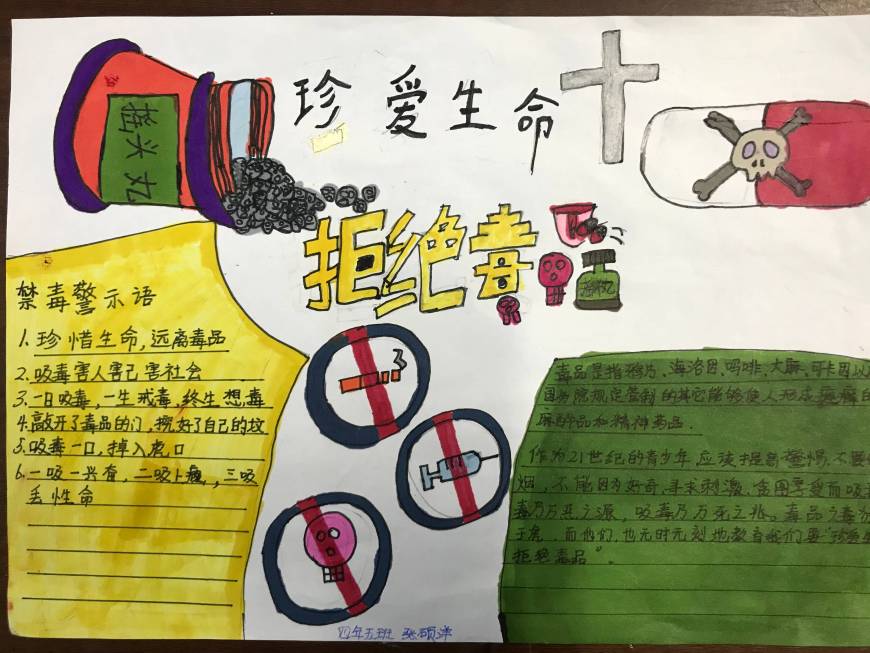 珍爱生命
摇头丸
拒绝毒
禁毒警示语
1. 珍惜生命,远离毒品
2. 吸毒害人害己害社会
3. 一日吸毒,一生戒毒,终生想毒
4. 敲开了毒品的门,挖好了自己的坟
5. 吸毒一口,掉入虎口
6. 一吸一兴奋,二吸上瘾,三吸
丢性命
毒品是指鸦片、海洛因、吗啡、大麻、可卡因以
国务院规定管制的其它能够使人形成瘾癖的
麻醉品和精神药品.
作为21世纪的青少年应该提高警惕,不要
烟,不能因为好奇、寻求刺激、贪图享受而吸
毒乃万恶之源,吸毒乃万死之兆。毒品之毒
于虎.而他们,也无时无刻地教育我们要"珍爱生
拒绝毒品"。
四年五班 张硕洋